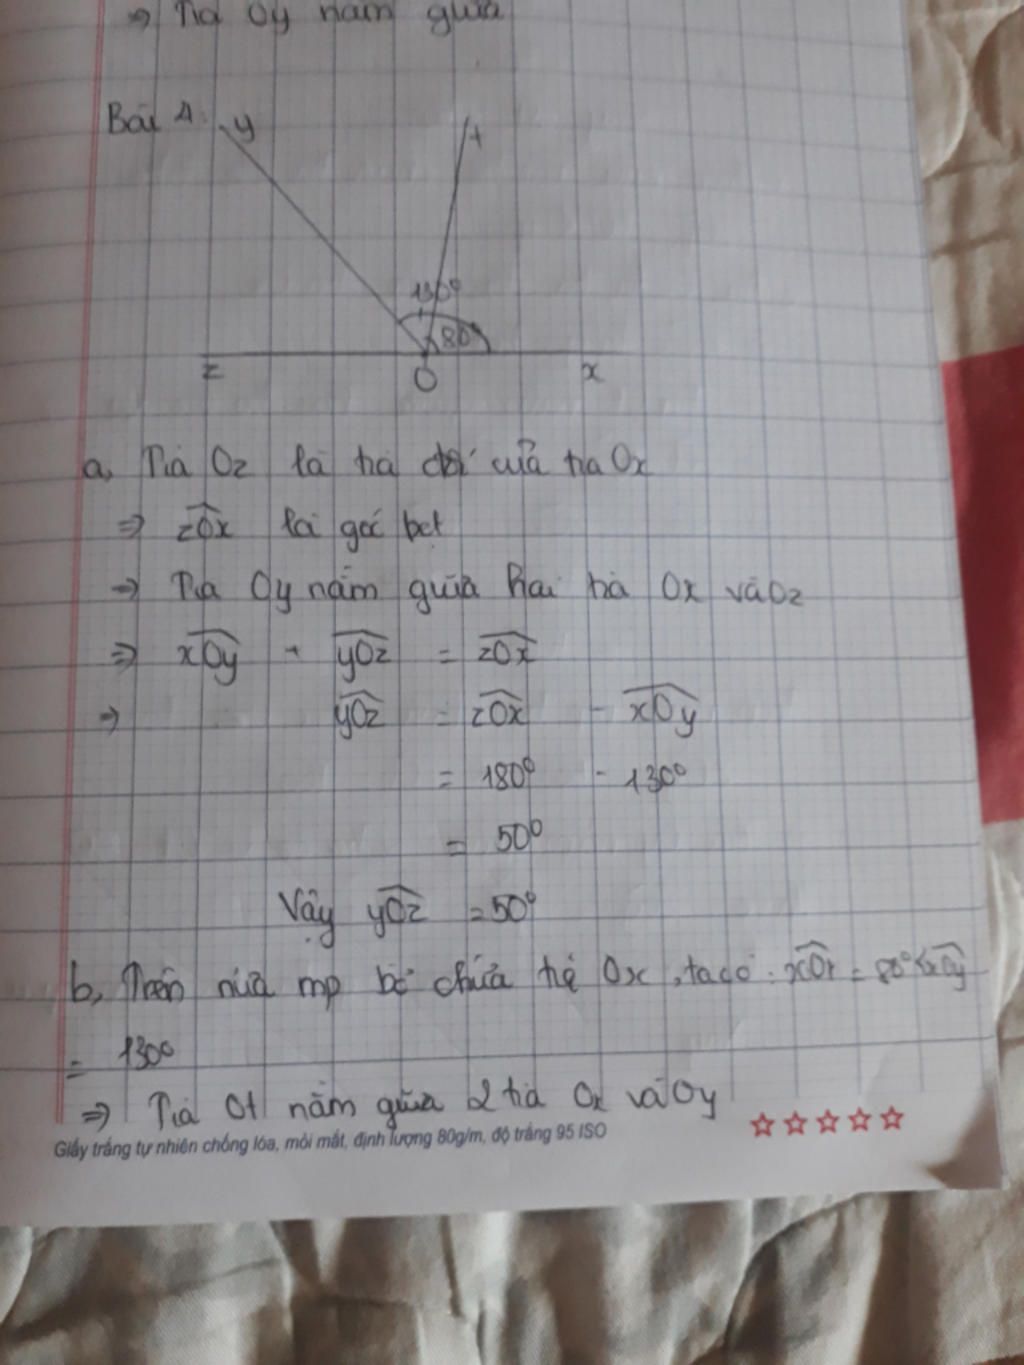 => Tia Oy nằm giữa
Bài 4:
y
t
130°
80°
z
O
x
a, Tia Oz là tia đối của tia Ox
=> zOx là góc bẹt
=> Tia Oy nằm giữa hai tia Ox và Oz
=> xOy + yOz = zOx
=> yOz = zOx - xOy
= 180° - 130°
= 50°
Vậy yOz = 50°
b, Trên nửa mp bờ chứa tia Ox, ta có: xOt = 80° < xOy
= 130°
=> Tia Ot nằm giữa 2 tia Ox và Oy
Giấy trắng tự nhiên chống lóa, mỏi mắt, định lượng 80g/m, độ trắng 95 ISO